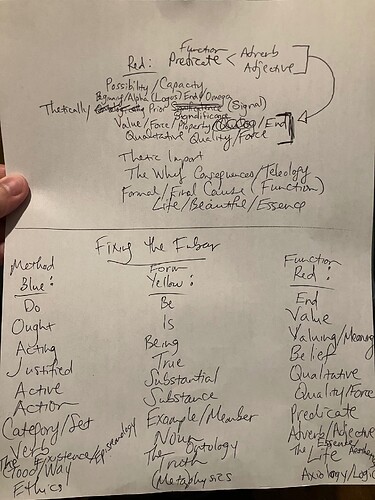 Function
Red: Predicate < Adverb
Adjective
Possibility/Capacity
Beginning/Alpha (Logos) End/Omega
Thetically/ Prior Significance (Signal)
Value/Force/Property/ /End
Qualitative Quality/Force
Thetic Import
The Why? Consequences/Teleology
Formal/Final Cause (Function)
Life/Beautiful/Essence
Fixing the
Method
Blue:
Do
Ought
Acting
Justified
Active
Action
Category/Set
Verb
The Existence/Epistemology
Good/Way
Ethics
Form
Yellow:
Be
Is
Being
True
Substantial
Substance
Example/Member
Noun
The Ontology
Truth
Metaphysics
Function
Red:
End
Value
Valuing/Meaning
Belief
Qualitative
Quality/Force
Predicate
Adverb/Adjective
The Essence/
Life
Axiology/Logic